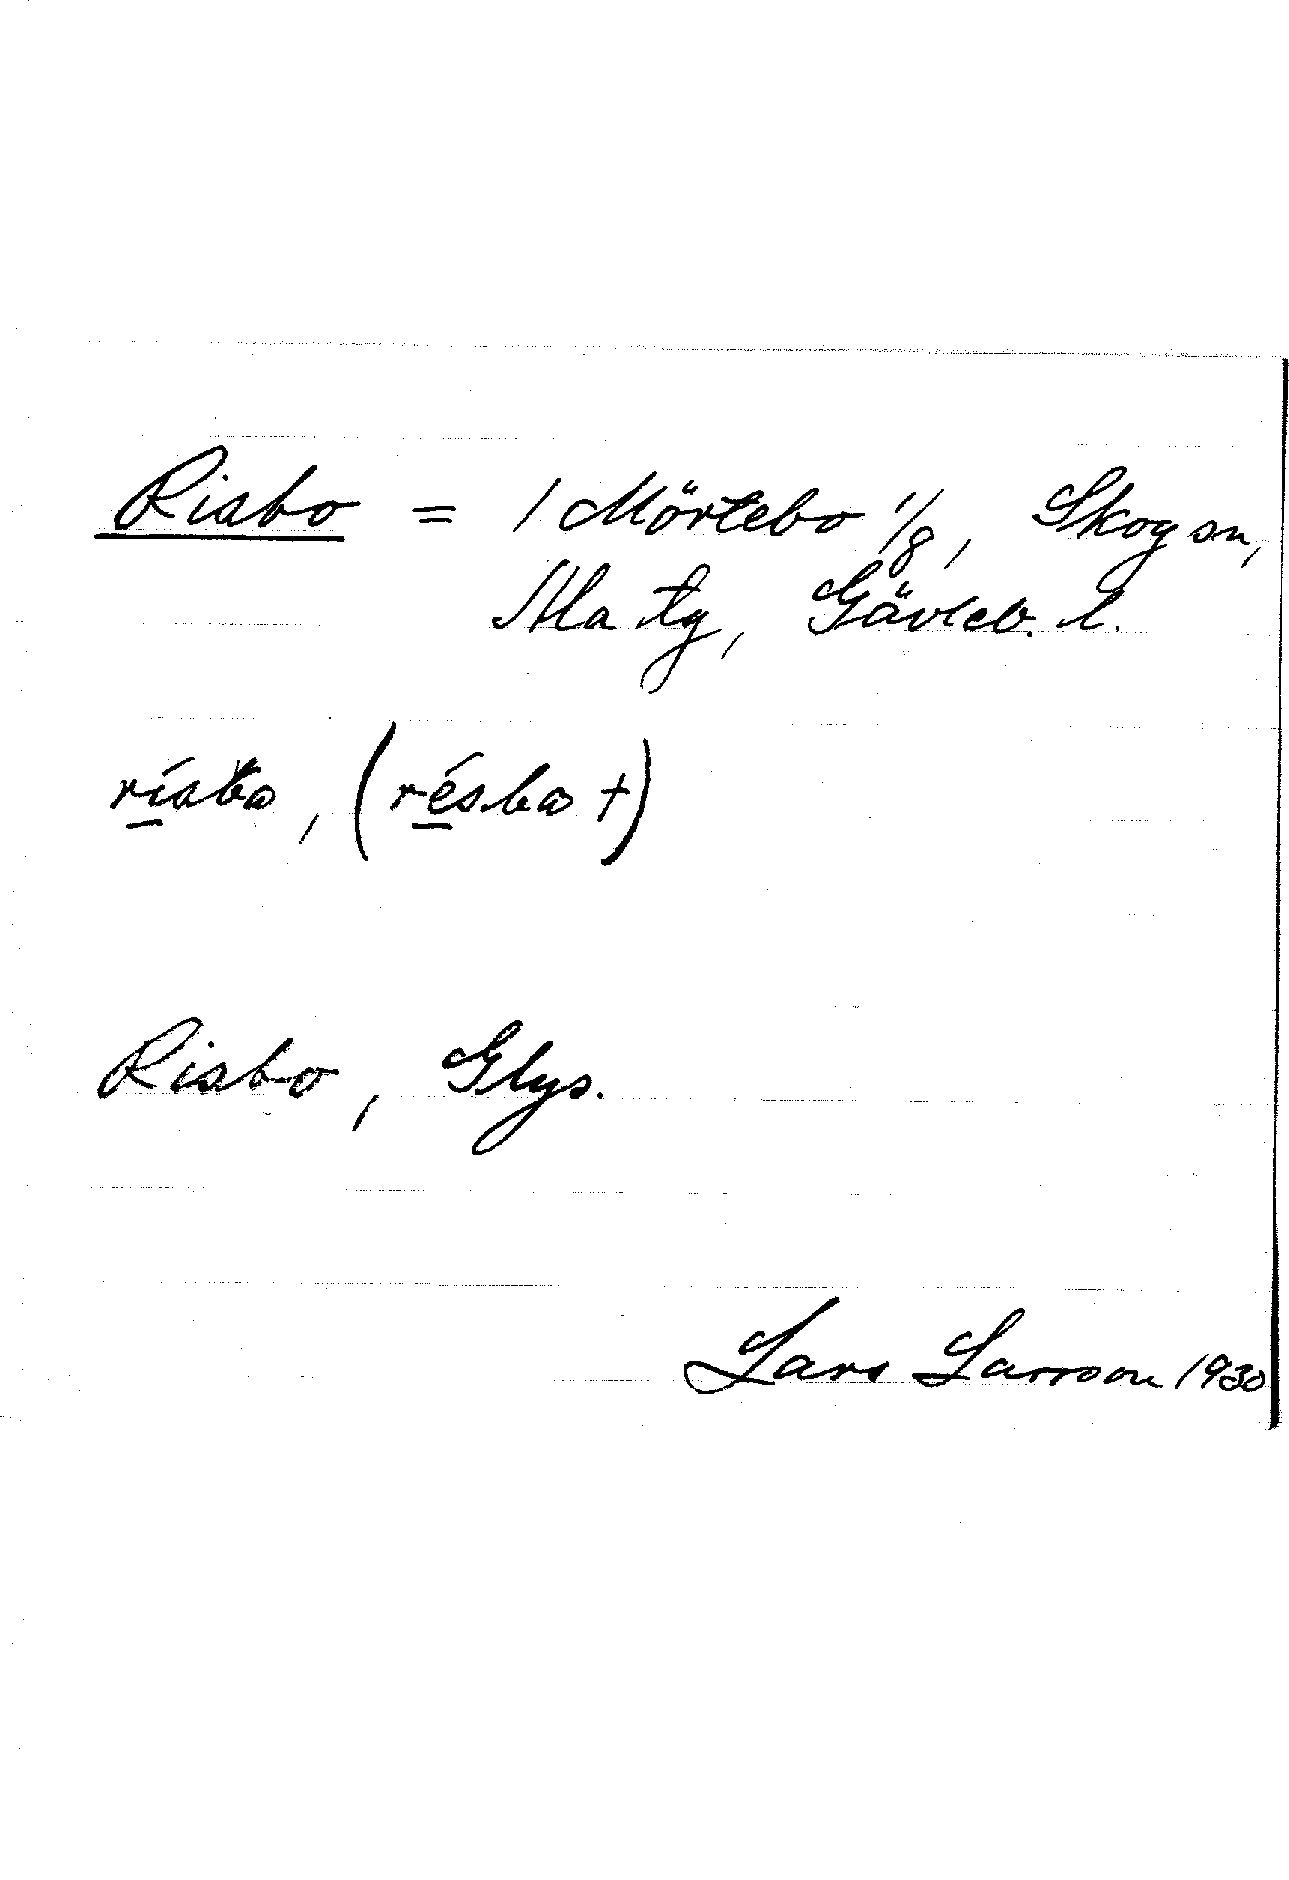 Risbo = 1 Mörtebo 1/8, Skog sn,
Ala tg, Gävleb. l.
rísbo, (résbo †)
Risbo, Glys.
Lars Larsson 1930